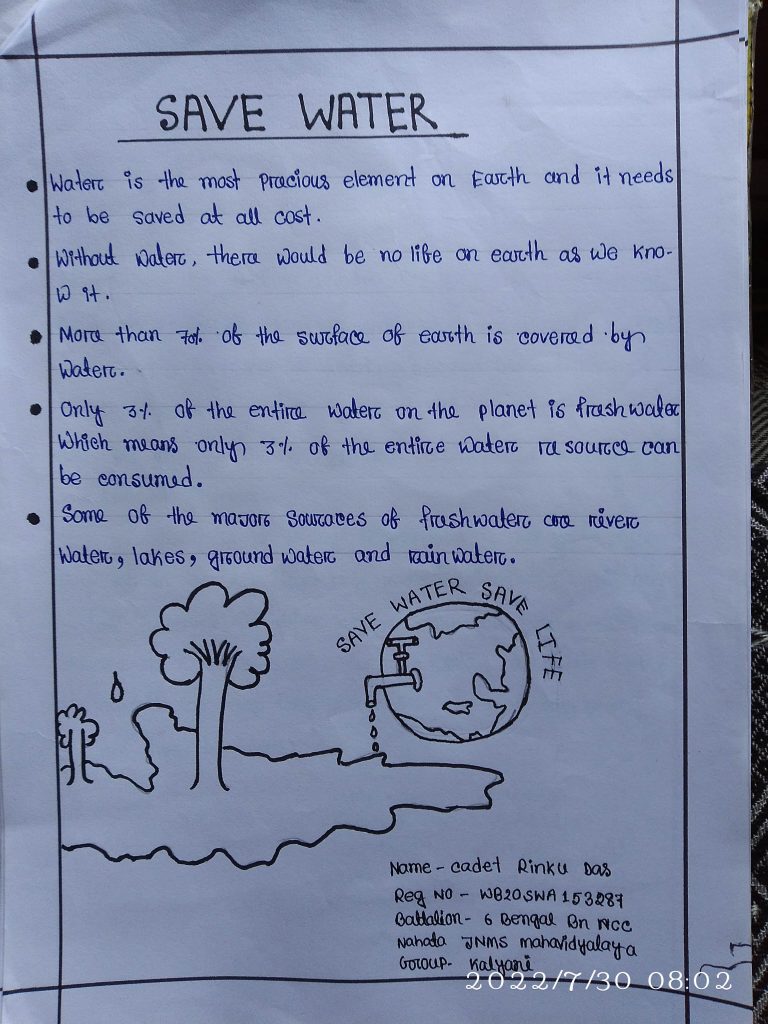 SAVE WATER
• Water is the most Pracious element on Earth and it needs
to be saved at all cost.
• Without water, there would be no life on earth as we kno-
w it.
• More than 70% of the surface of earth is covered by
water.
• Only 3% of the entire water on the planet is freshwater
Which means only 3% of the entire water resource can
be consumed.
• Some of the major sources of freshwater are river
water, lakes, ground water and rain water.
SAVE WATER SAVE LIFE
Name - cadet Rinku Das
Reg NO - WB20SWA153287
Battalion - 6 Bengal Bn NCC
Nahata JNMS mahavidyalaya
Group - Kalyani
2022/7/30 08:02